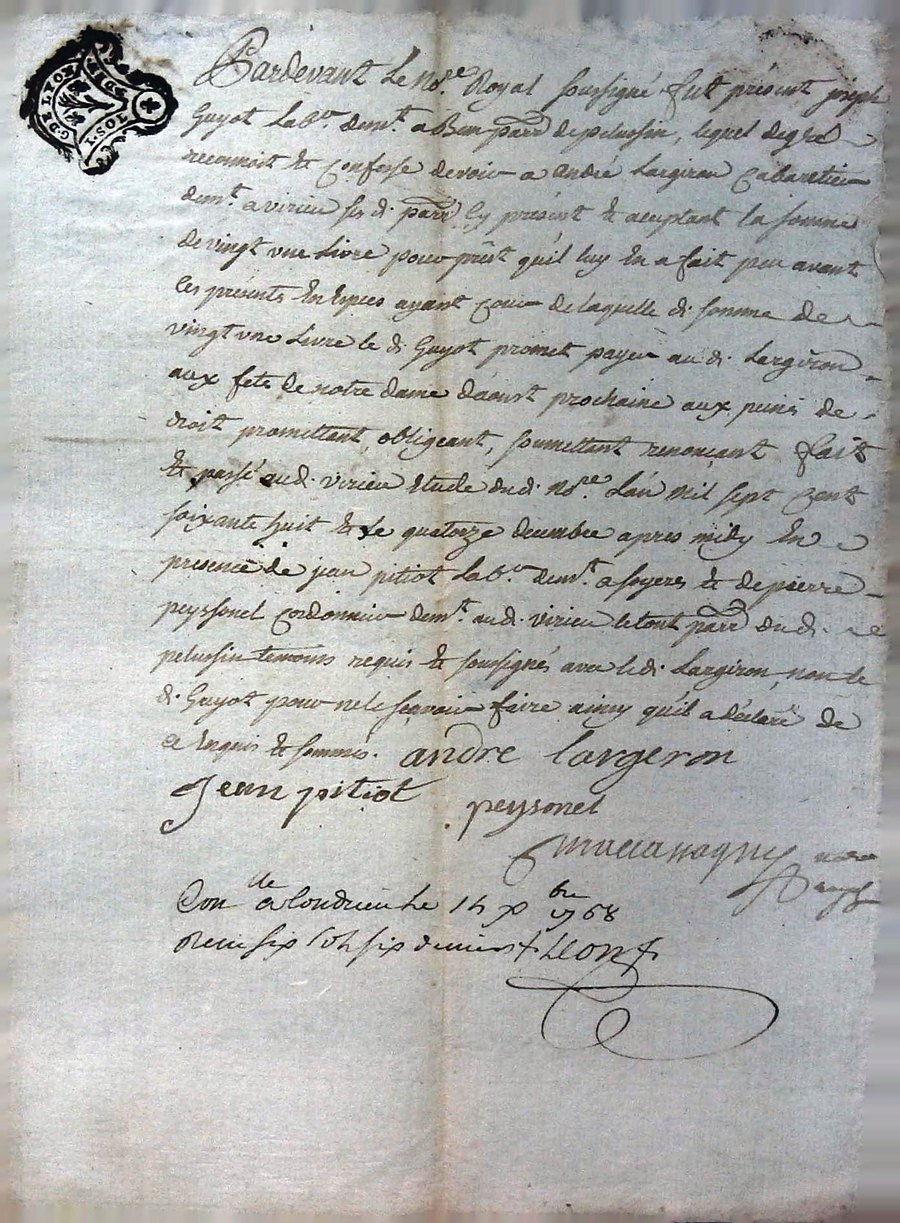 G. DE LYON
I. SOL
DIX DEN
Pardevant Le no.re Royal soussigné fut présent joseph
Guyot Lab.r demt. a Ban parr de pelussin, lequel de gré
reconnoit et confesse devoir a andré Largiron Cabaretier
demt. a virieu sus d. parr. Cy présent et aceptant la somme
de vingt une Livre pour prêt qu'il luy En a fait peu avant
Ces présents En espèces ayant Cour de laquelle d. somme de
vingt une Livre le d. Guyot promet payer au d. Largiron
aux fete de notre dame d'aoust prochaine aux peines de
droit promettant, obligeant, soumettant renonçant fait
et passé au d. virieu étude du d. no.re L'an Mil sept Cent
soixante huit et Le quatorze decembre apres midy En
presence de jean pitiot Lab.r demt. a soyeres et de pierre
peyssonel Cordonnier demt. au d. virieu le tout parr du d.
pelussin temoins requis et soussignés avec le d. Largiron, non le
d. Guyot pour ne le sçavoir faire ainsy qu'il a déclaré de
ce Enquis et sommé. andre largeron
Jean pitiot peysonel
Con.de a Condrieu Le 14 xbre 1768
Recu six sols six deniers Fleon